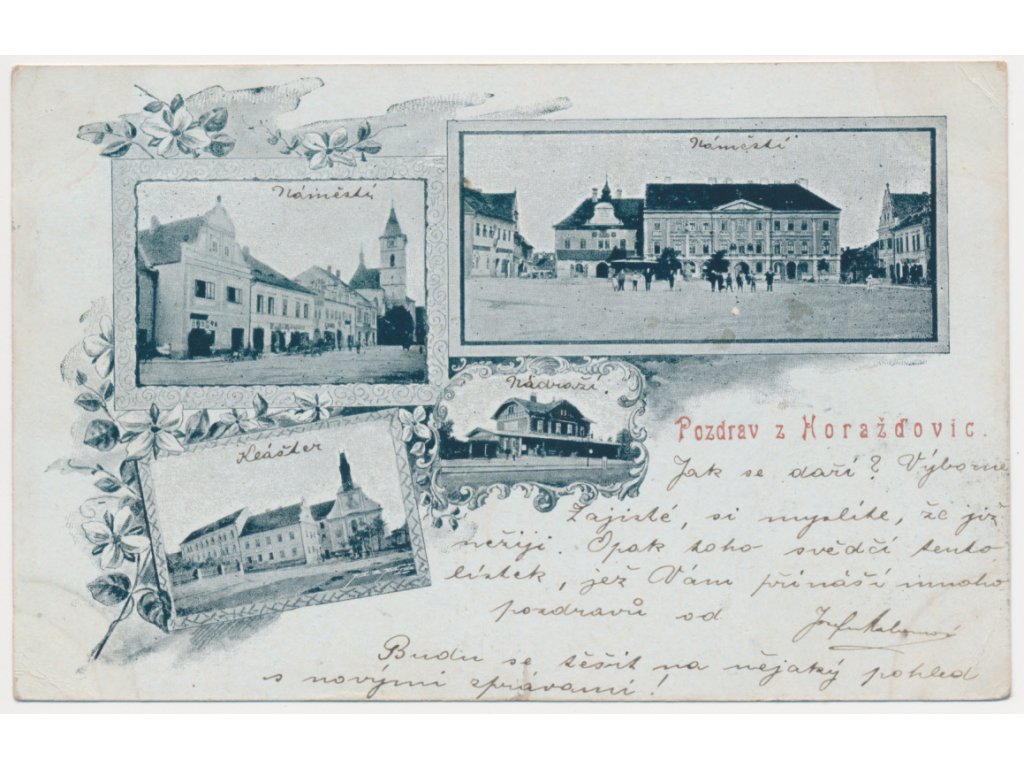 Náměstí
Náměstí
Nádraží.
Klášter
Pozdrav z Horažďovic.
Jak se daří? Výborně
Zajisté, si myslíte, že již
nežiji. Opak toho svědčí tento
lístek, jež Vám přináší mnoho
pozdravů od
Budu se těšit na nějaký pohled
s novými zprávami!